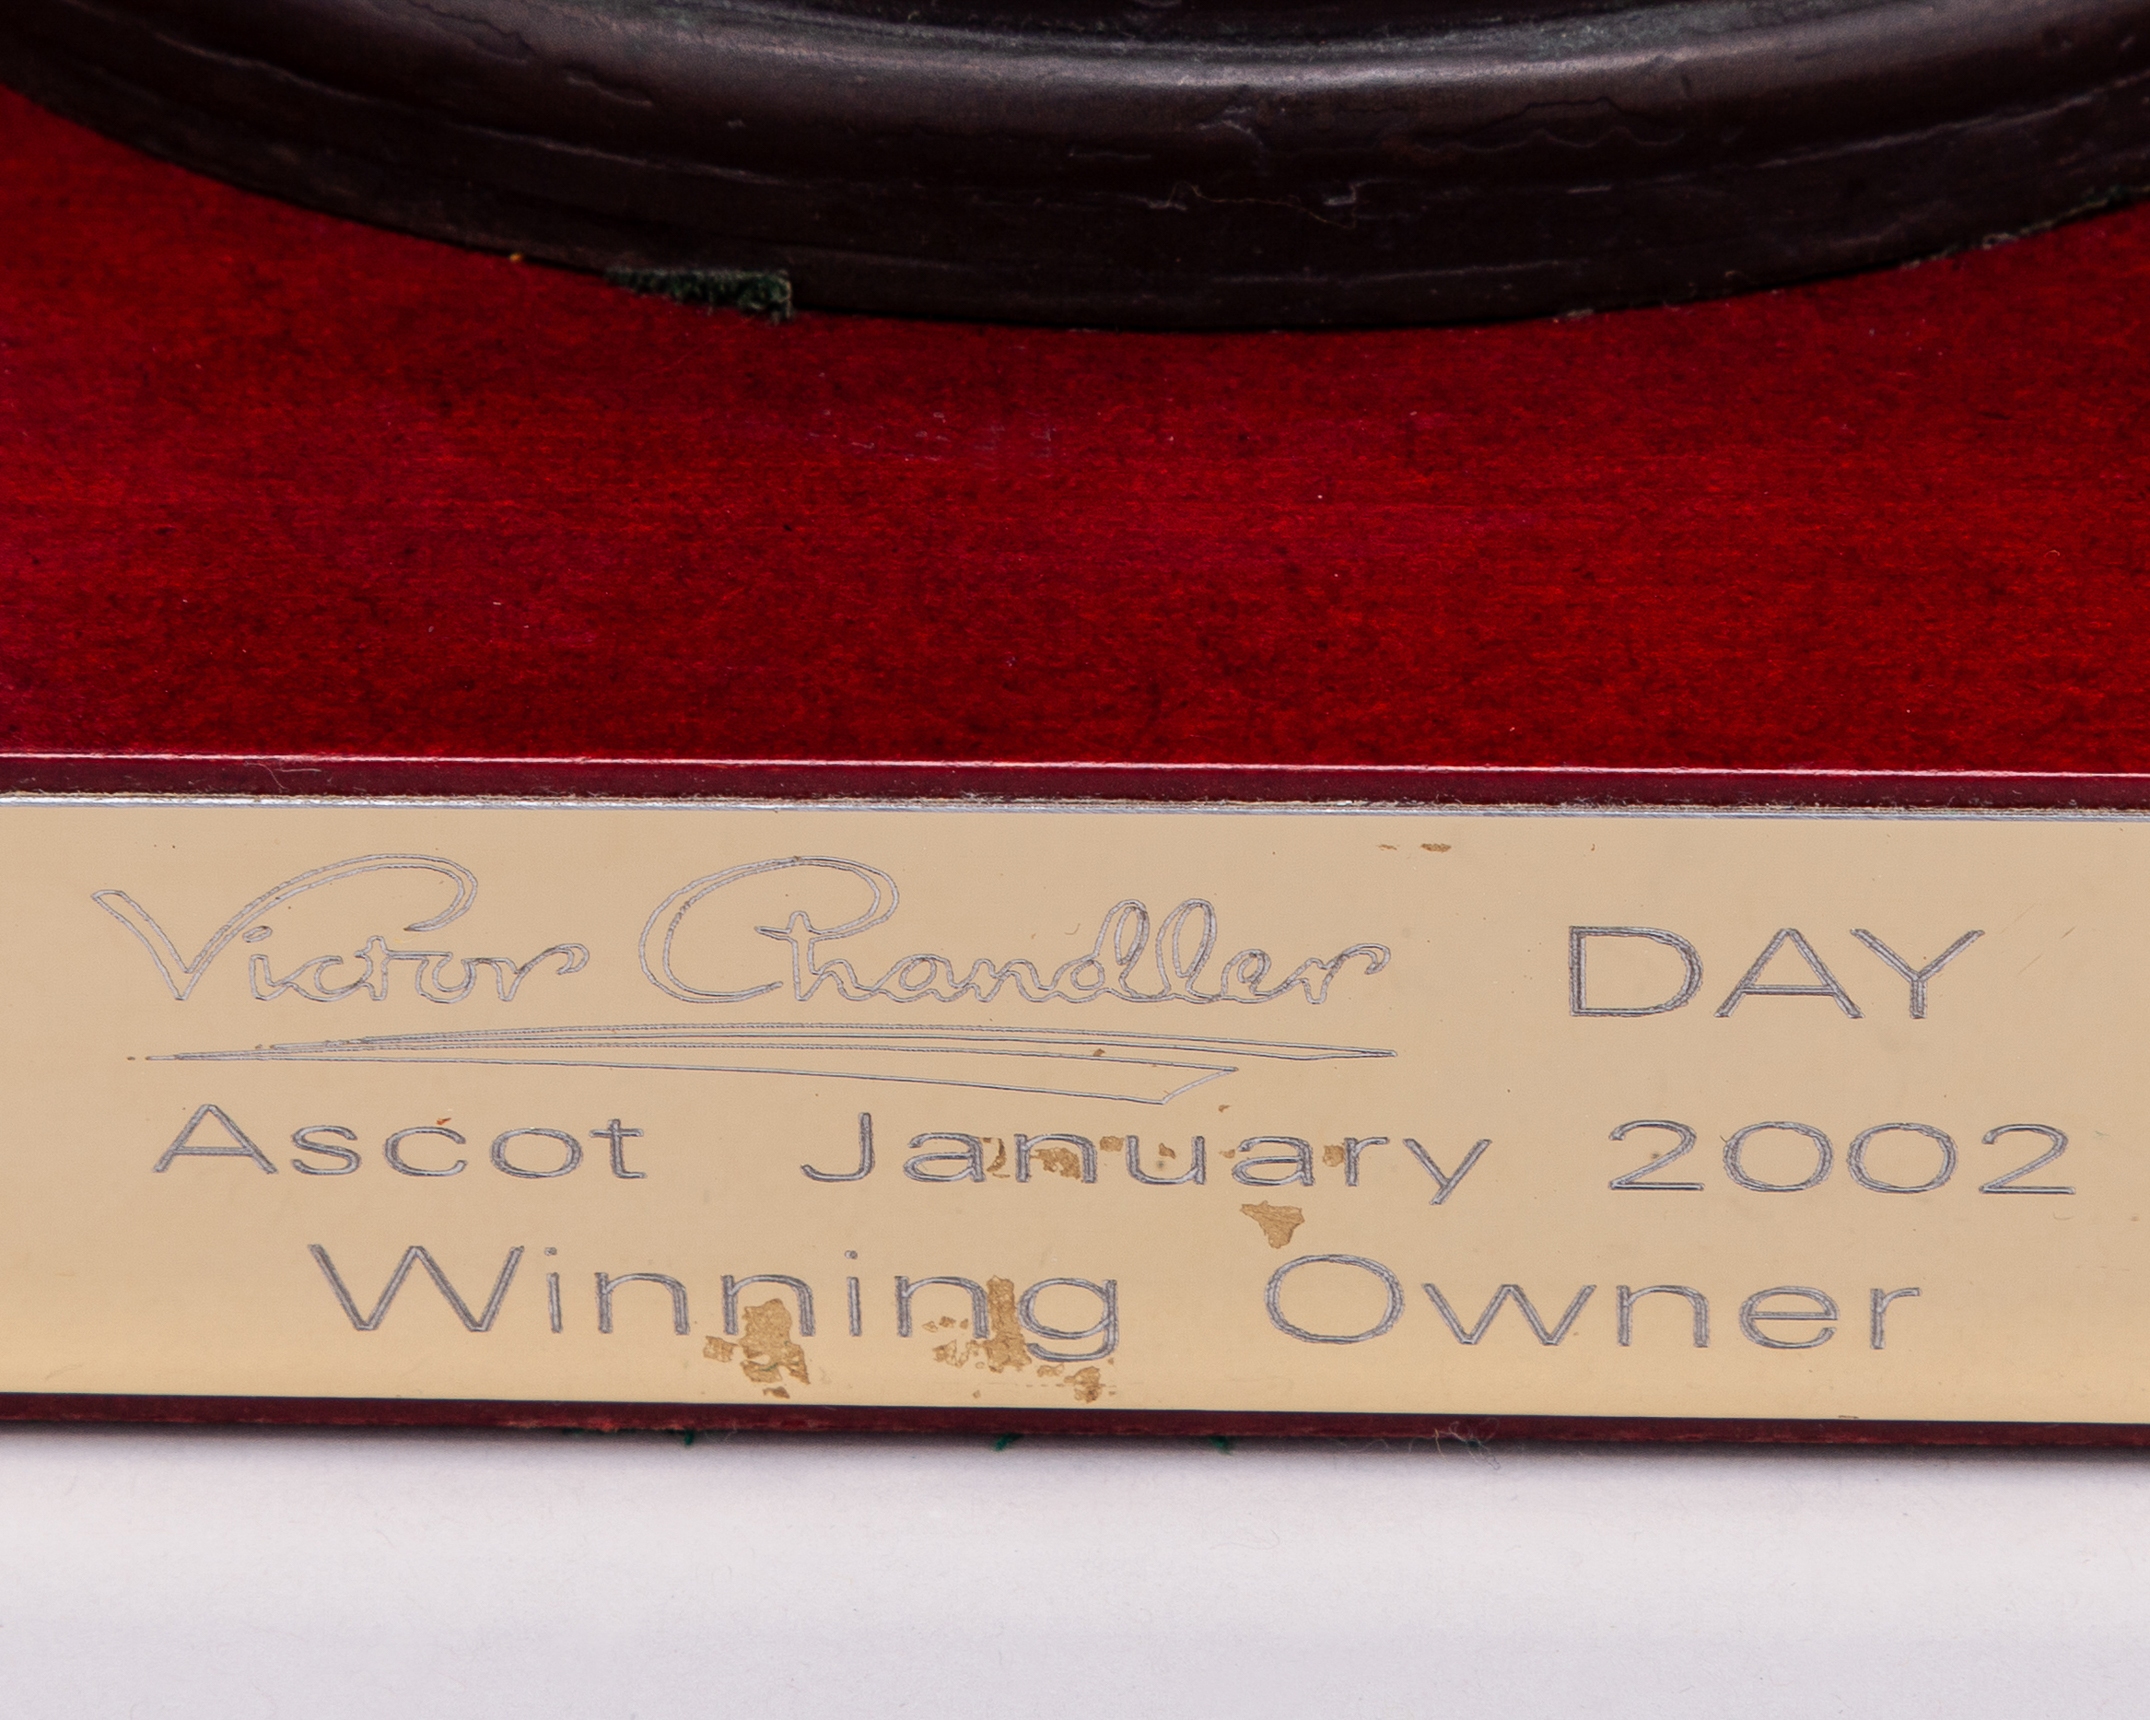 Victor Chandler DAY
Ascot January 2002
Winning Owner